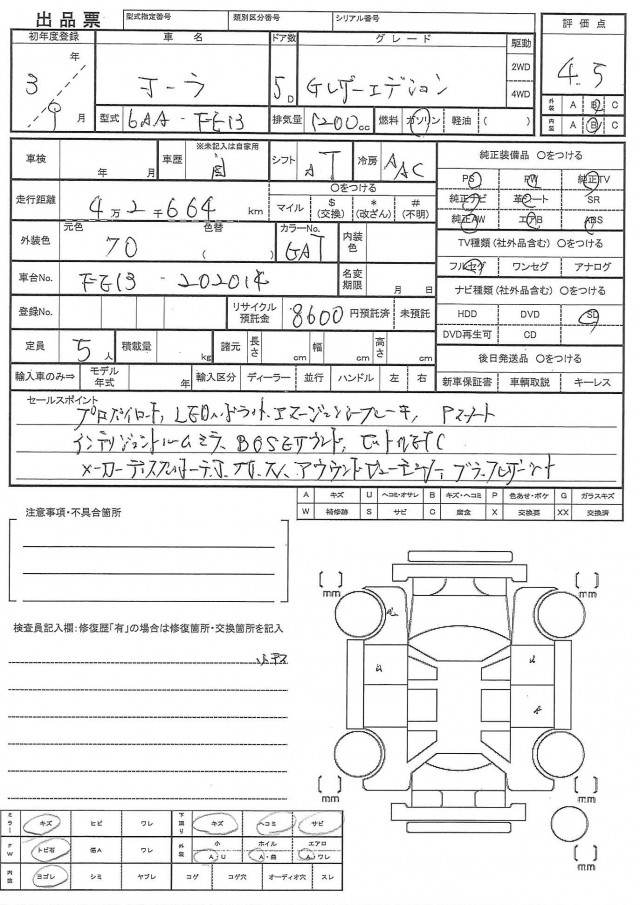 出品票 型式指定番号 類別区分番号 シリアル番号
初年度登録 車名 ドア数 グレード 駆動 評価点
3年 9月 オーラ 5D Gレザーエディション 2WD 4WD 4.5
外装 A B C
型式 6AA-FE13 排気量 1200cc 燃料 ガソリン 軽油 ( ) 内装 A B C
車検 年 月 車歴 ※未記入は自家用 自 シフト AT 冷房 AAC 純正装備品 〇をつける
PS PW 純正TV
走行距離 4万2千664km 〇をつける マイル $(交換) *(改ざん) #(不明) 純正ナビ 革シート SR
純正AW エアB ABS
外装色 元色 70 色替 ( ) カラーNo. GAT 内装色 TV種類(社外品含む) 〇をつける
フルセグ ワンセグ アナログ
車台No. FE13-202014 名変期限 月 日 ナビ種類(社外品含む) 〇をつける
登録No. リサイクル預託金 8600円預託済 未預託 HDD DVD SD
DVD再生可 CD
定員 5人 積載量 kg 諸元 長さ cm 幅 cm 高さ cm 後日発送品 〇をつける
輸入車のみ⇒ モデル年式 年 輸入区分 ディーラー 並行 ハンドル 左 右 新車保証書 車輌取説 キーレス
セールスポイント
プロパイロット, LEDヘッドライト, エマージェンシーブレーキ,
インテリジェントルームミラー, BOSEサウンド, ETC
A キズ U ヘコミ・オサレ B キズ・ヘコミ P 色あせ・ボケ G ガラスキズ
W 補修跡 S サビ C 腐食 X 交換要 XX 交換済
注意事項・不具合箇所
検査員記入欄:修復歴「有」の場合は修復箇所・交換箇所を記入
[ ] mm [ ] mm
A
U U
A
[ ] mm [ ] mm
ミラー キズ ヒビ ワレ 下廻り キズ ヘコミ サビ
FW トビ石 傷A ワレ 外装 小 A・U ホイル A・曲 エアロ A・ワレ
内装 ヨゴレ シミ ヤブレ コゲ コゲ穴 オーディオ穴 スレ